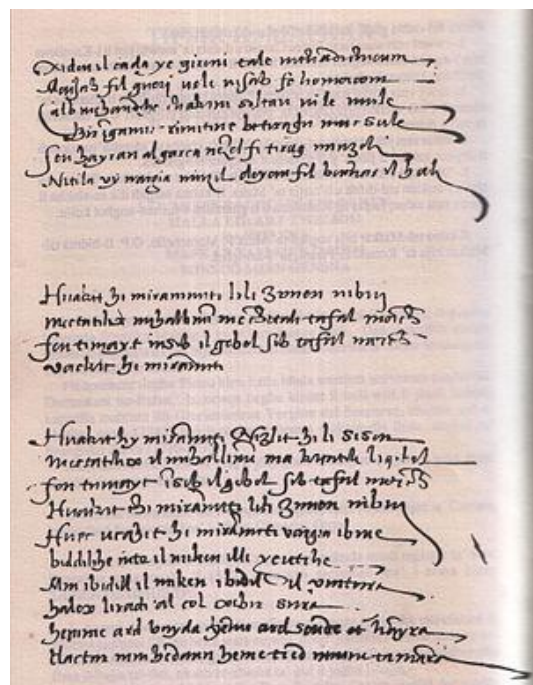 Xideu il cada ye gireni tale nichadithicum
Mensab fil gueri uele nisab fo homorcom
calb mehandihe chakim soltan ui le mule
Bir imgamic rimitine betiragin mucsule
fen hayran al garca nenzel fi tirag minzeli
Nitila vy nargia ninzil deyem fil bachar il hali
Huakit hi mirammiti lili zimen nibni
mectatilix mihallimin me chitali tafal morchi
fen timayt insib il gebel sib tafal morchi
vackit hi mirammiti
Huakit hy mirammiti Nizlit hi li sisen
mectatilix il mihallimin ma kitatili li gebel
fen tumayt insib il gebel sib tafal morchi
Huakit thi mirammiti lili zimen nibni
Huec ucakit hi mirammiti vargia ibnie
biddilihe inte il miken illi yeutihe
Min ibidill il miken ibidil il vintura
haliex liradi al col xebir sura
hemme ard bayda hemme ard seude et hamyra
Hactar min hedaun heme tred minne tamara